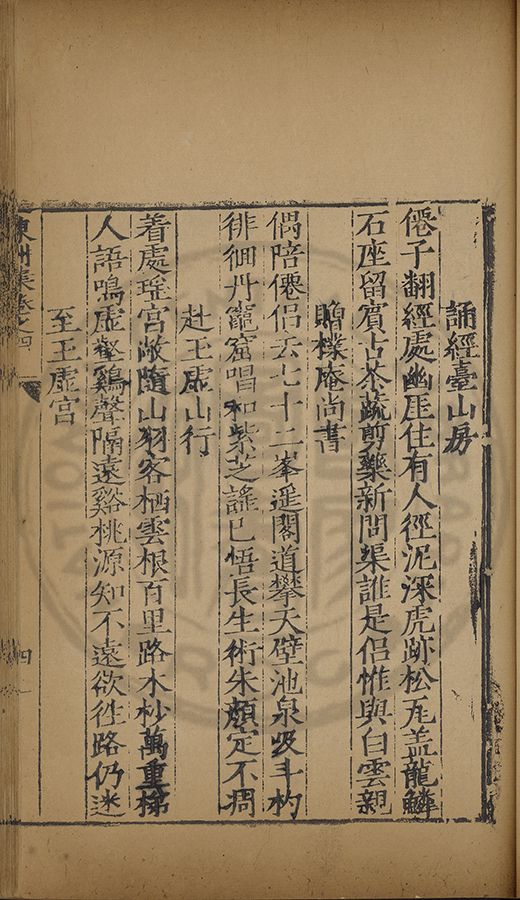 誦經臺山房
僊子翻經處幽厓住有人徑泥深虎跡松瓦盖龍鱗
石座留賓占茶蔬剪藥新問渠誰是侣惟與白雲親
贈樸庵尚書
偶陪僊侣去七十二峯遥閣道攀天壁池泉吸斗杓
徘徊丹竈窟唱和紫芝謠已悟長生術朱顔定不凋
赴玉虛山行
着處瑶宫敞隨山羽客栖雲根百里路木杪萬重梯
人語鳴虛壑鷄聲隔遠谿桃源知不遠欲徃路仍迷
至玉虛宫
東洲集卷之四
四